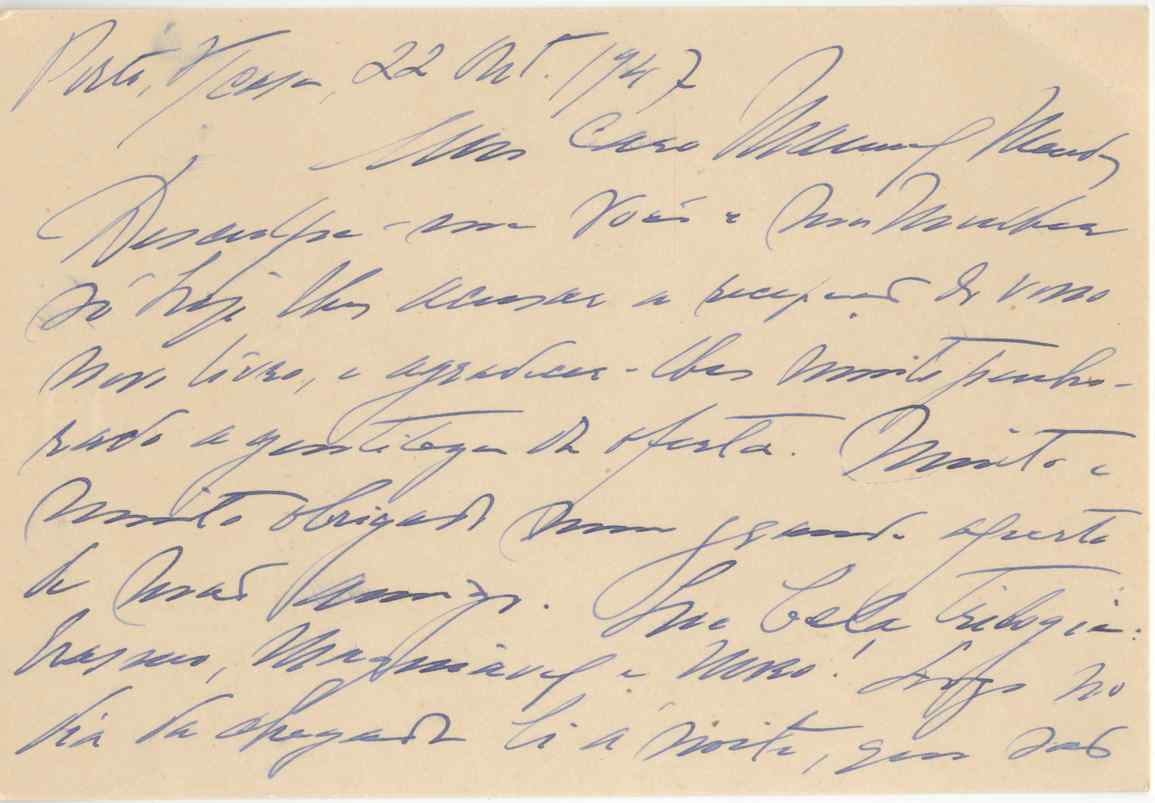 Porto, V/ Casa, 22 Out. 1947
Meu Caro Manuel Mendes
Desculpe-me Você e sua Mulher
só hoje lhes acusar a recepção do vosso
novo livro, e agradecer-lhes muito penho-
rado a gentileza da oferta. Muito e
muito obrigado num grande aperto
de mão amigo. Que bela trilogia:
Erasmo, Maquiavel e Moro! Logo no
dia da chegada li à noite, que são